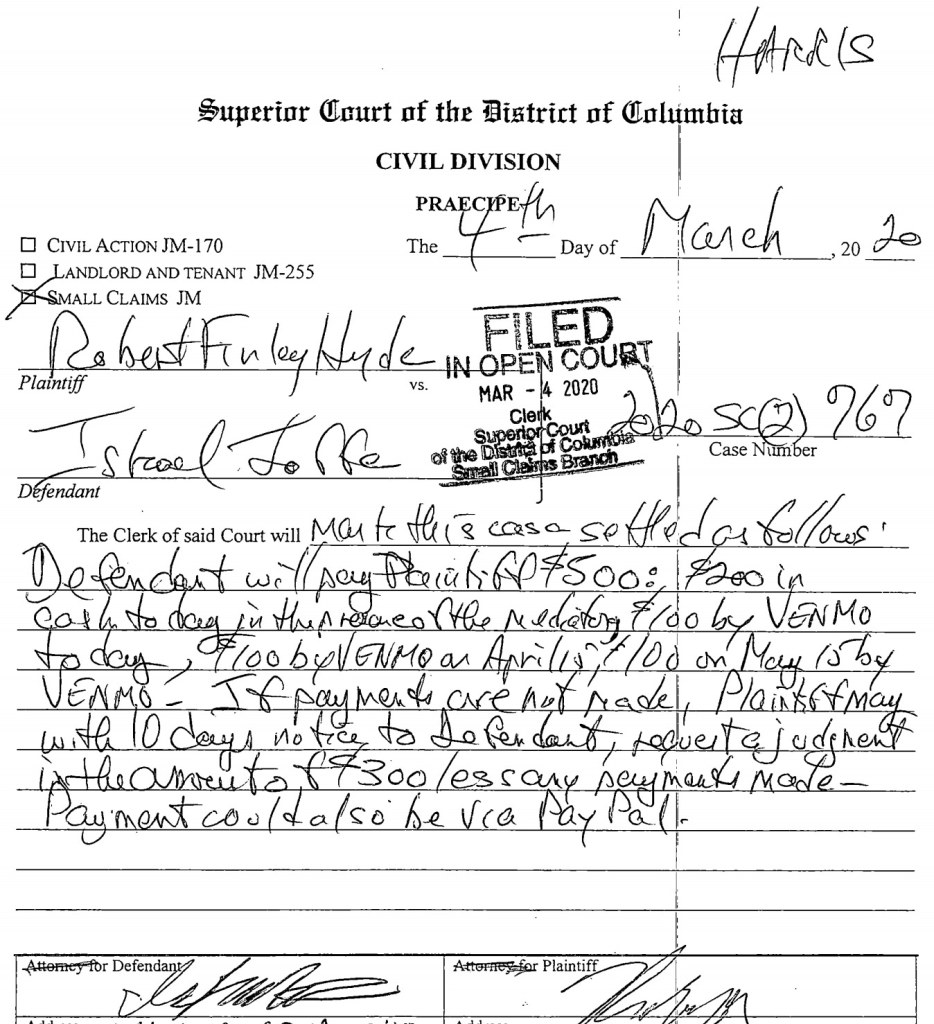 HARRIS
Superior Court of the District of Columbia
CIVIL DIVISION
PRAECIPE
The 4th Day of March, 2020
☐ CIVIL ACTION JM-170
☐ LANDLORD AND TENANT JM-255
☒ SMALL CLAIMS JM
Robert Finley Hyde
Plaintiff
vs.
FILED
IN OPEN COURT
MAR - 4 2020
Clerk
Superior Court
of the District of Columbia
Small Claims Branch
2020 SC(2) 767
Case Number
Israel Joffe
Defendant
The Clerk of said Court will Mark this case settled as follows:
Defendant will pay Plaintiff $500: $200 in
cash today in the presence of the mediator, $100 by VENMO
today, $100 by VENMO on April 15, $100 on May 15 by
VENMO - If payments are not made, Plaintiff may
with 10 days notice to Defendant, request a judgment
in the amount of $300 less any payments made -
Payment could also be via PayPal.
Attorney for Defendant
Attorney for Plaintiff